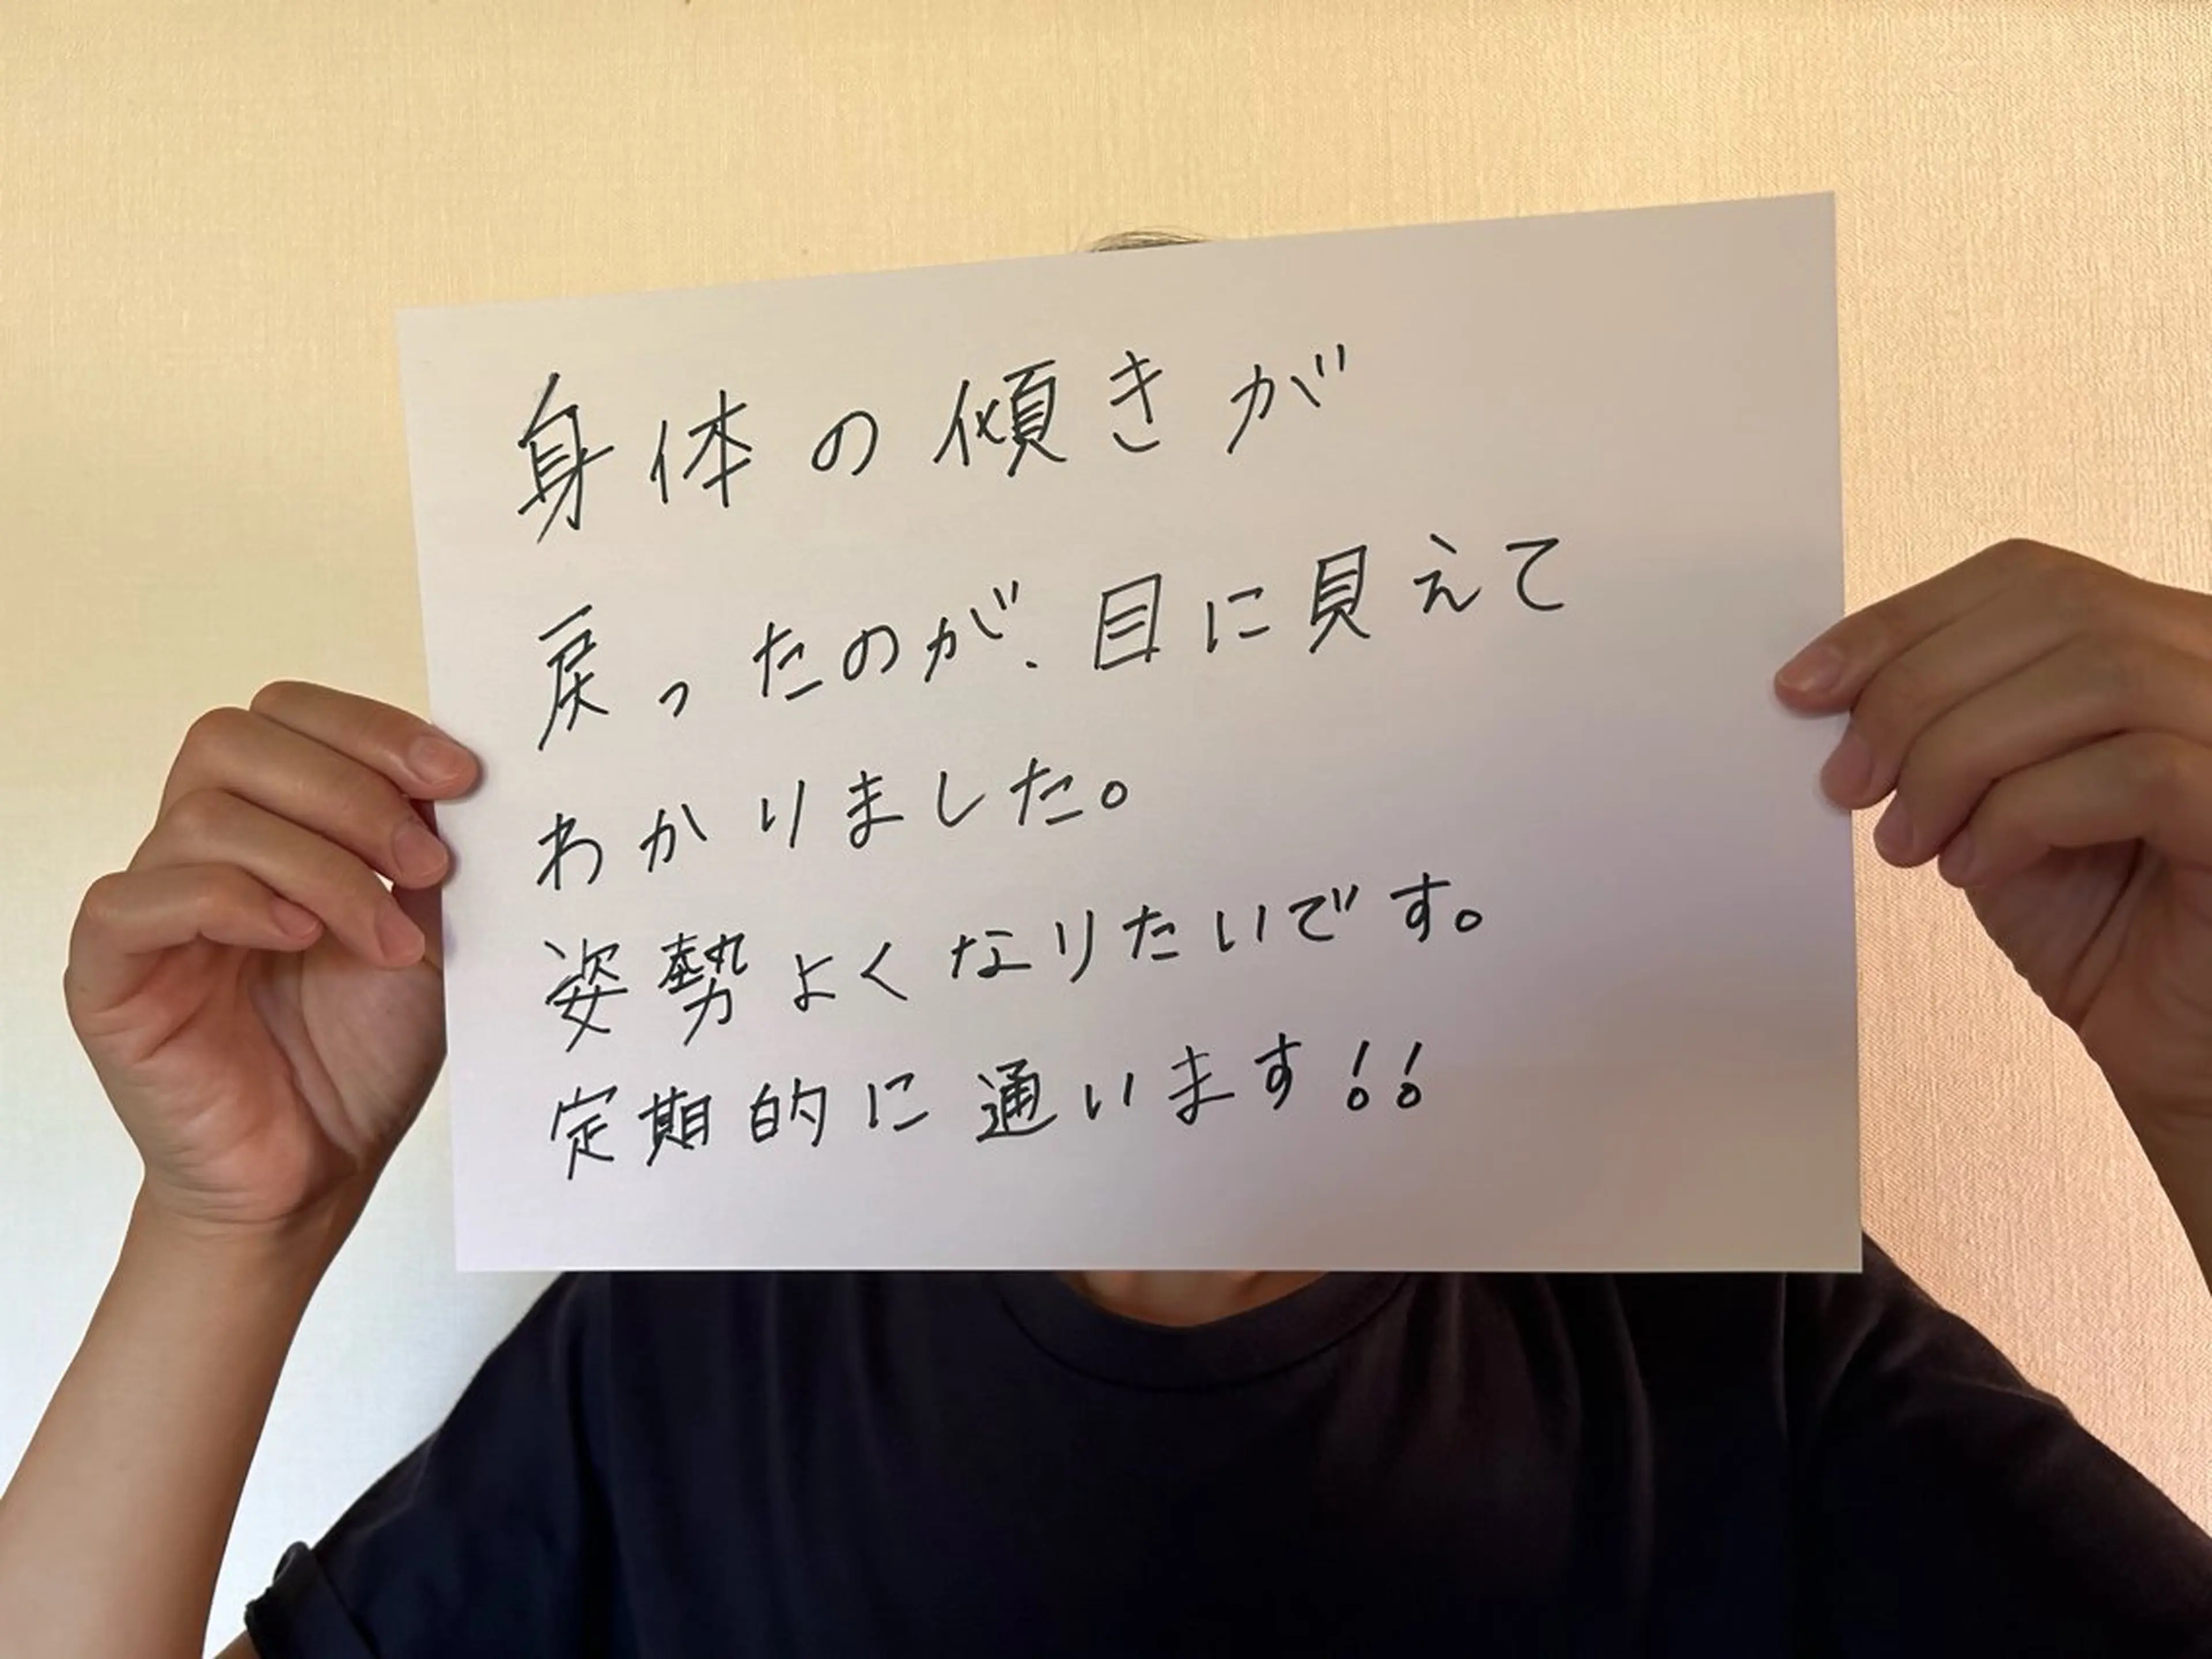 身体の傾きが
戻ったのが、目に見えて
わかりました。
姿勢よくなりたいです。
定期的に通います!!